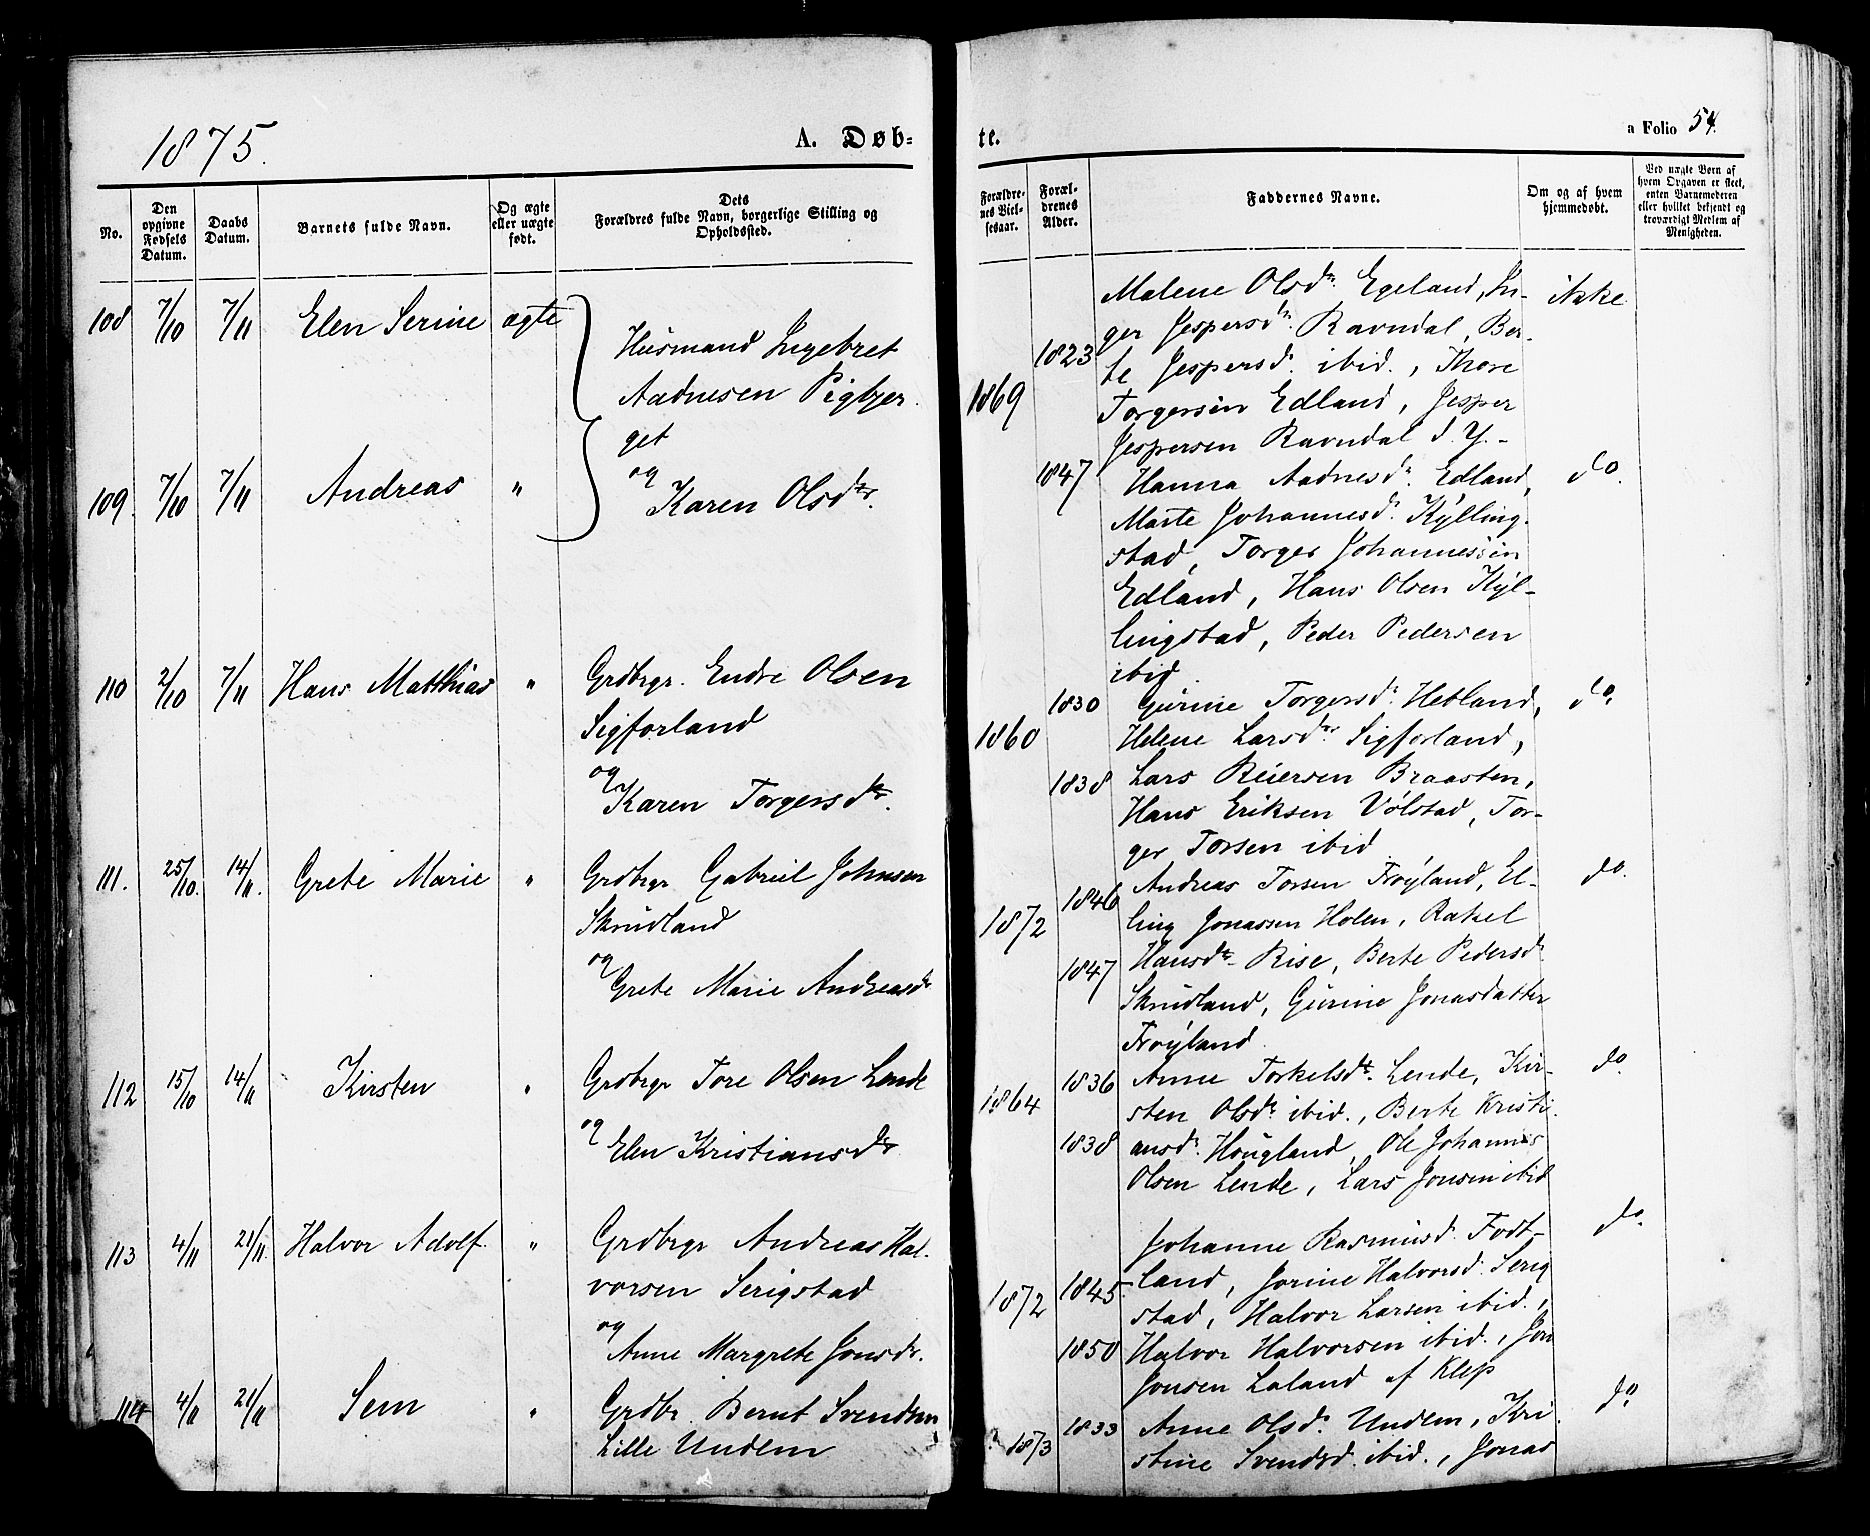 1875.
A. Døb-
te.
a Folio 54.
No.
Den opgivne Fødsels Datum.
Daabs Datum.
Barnets fulde Navn.
Og ægte eller uægte født.
Dets Forældres fulde Navn, borgerlige Stilling og Opholdssted.
Forældre-nes Viel-sesaar.
Foræl-drenes Alder.
Faddernes Navne.
Om og af hvem hjemmedøbt.
Ved uægte Børn af hvem Opgaven er skeet, enten Barnemoderen eller hvilket bekjendt og troværdigt Medlem af Menigheden.
108 7/10 7/11 Elen Serine ægte
Husmand Ingebret
Aadnesen Pigbjer-
get
og
Karen Olsdtr.
1869
1823
1847
Malene Olsdr. Egeland, In-
ger Jespersdr. Ravndal, Ber-
te Jespersd. ibid., Thore
Torgersen Edland, Jesper
Jespersen Ravndal d. Y. -
ikke
109. 7/10 7/11 Andreas "
Hanna Aadnesdr. Edland,
Marte Johannesdr. Kylling-
stad, Torger Johannessen
Edland, Hans Olsen Kyl-
lingstad, Peder Pedersen
ibid
do.
110 2/10 7/11 Hans Matthias "
Grdbrgr. Endre Olsen
Sigforland
og
Karen Torgersdtr.
1860
1830
1838
Gurine Torgersdr. Hetland,
Helene Larsdtr. Sigforland,
Lars Reiersen Braasten,
Hans Eriksen Vølstad, Tor-
ger Torsen ibid
do.
111. 25/10. 14/11. Grete Marie "
Grdbrgr Gabriel Johnsen
Skrudland
og
Grete Marie Andreasdr
1872
1846
1847
Andreas Torsen Frøyland, El-
ling Jonassen Holen, Rakel
Hansdtr. Rise, Berte Pedersdr.
Skrudland, Gurine Jonasdatter
Frøyland.
do.
112 15/10 14/11 Kirsten "
Grdbrgr Tore Olsen Lende
og
Elen Kristiansdtr
1864
1836
1838
Anne Torkelsdtr. Lende, Kir-
sten Olsdr. ibid., Berte Kristi-
ansdr. Hougland, Ole Johannes
Olsen Lende, Lars Jonsen ibid
do.
113 4/11 21/11. Halvor Adolf. "
Grdbrgr Andreas Hal-
vorsen Serigstad
og
Anne Margrete Jonsdr.
1872
1845.
1850
Johanne Rasmusd. Fodt-
land, Jorine Halvorsd. Serig
stad, Halvor Larsen ibid.,
Halvor Halvorsen ibid., Jon
Jonsen Laland af Klep
do.
114 4/11 21/11 Sem "
Grdbr. Bernt Svendsen
Lille Undem
1873
1833
Anne Olsdr. Undem, Kri-
stine Svendsd. ibid., Jonas
do.